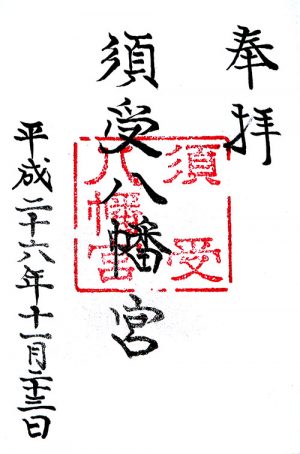 奉拝
須受八幡宮
須受
八幡宮
平成二十六年十一月二十三日